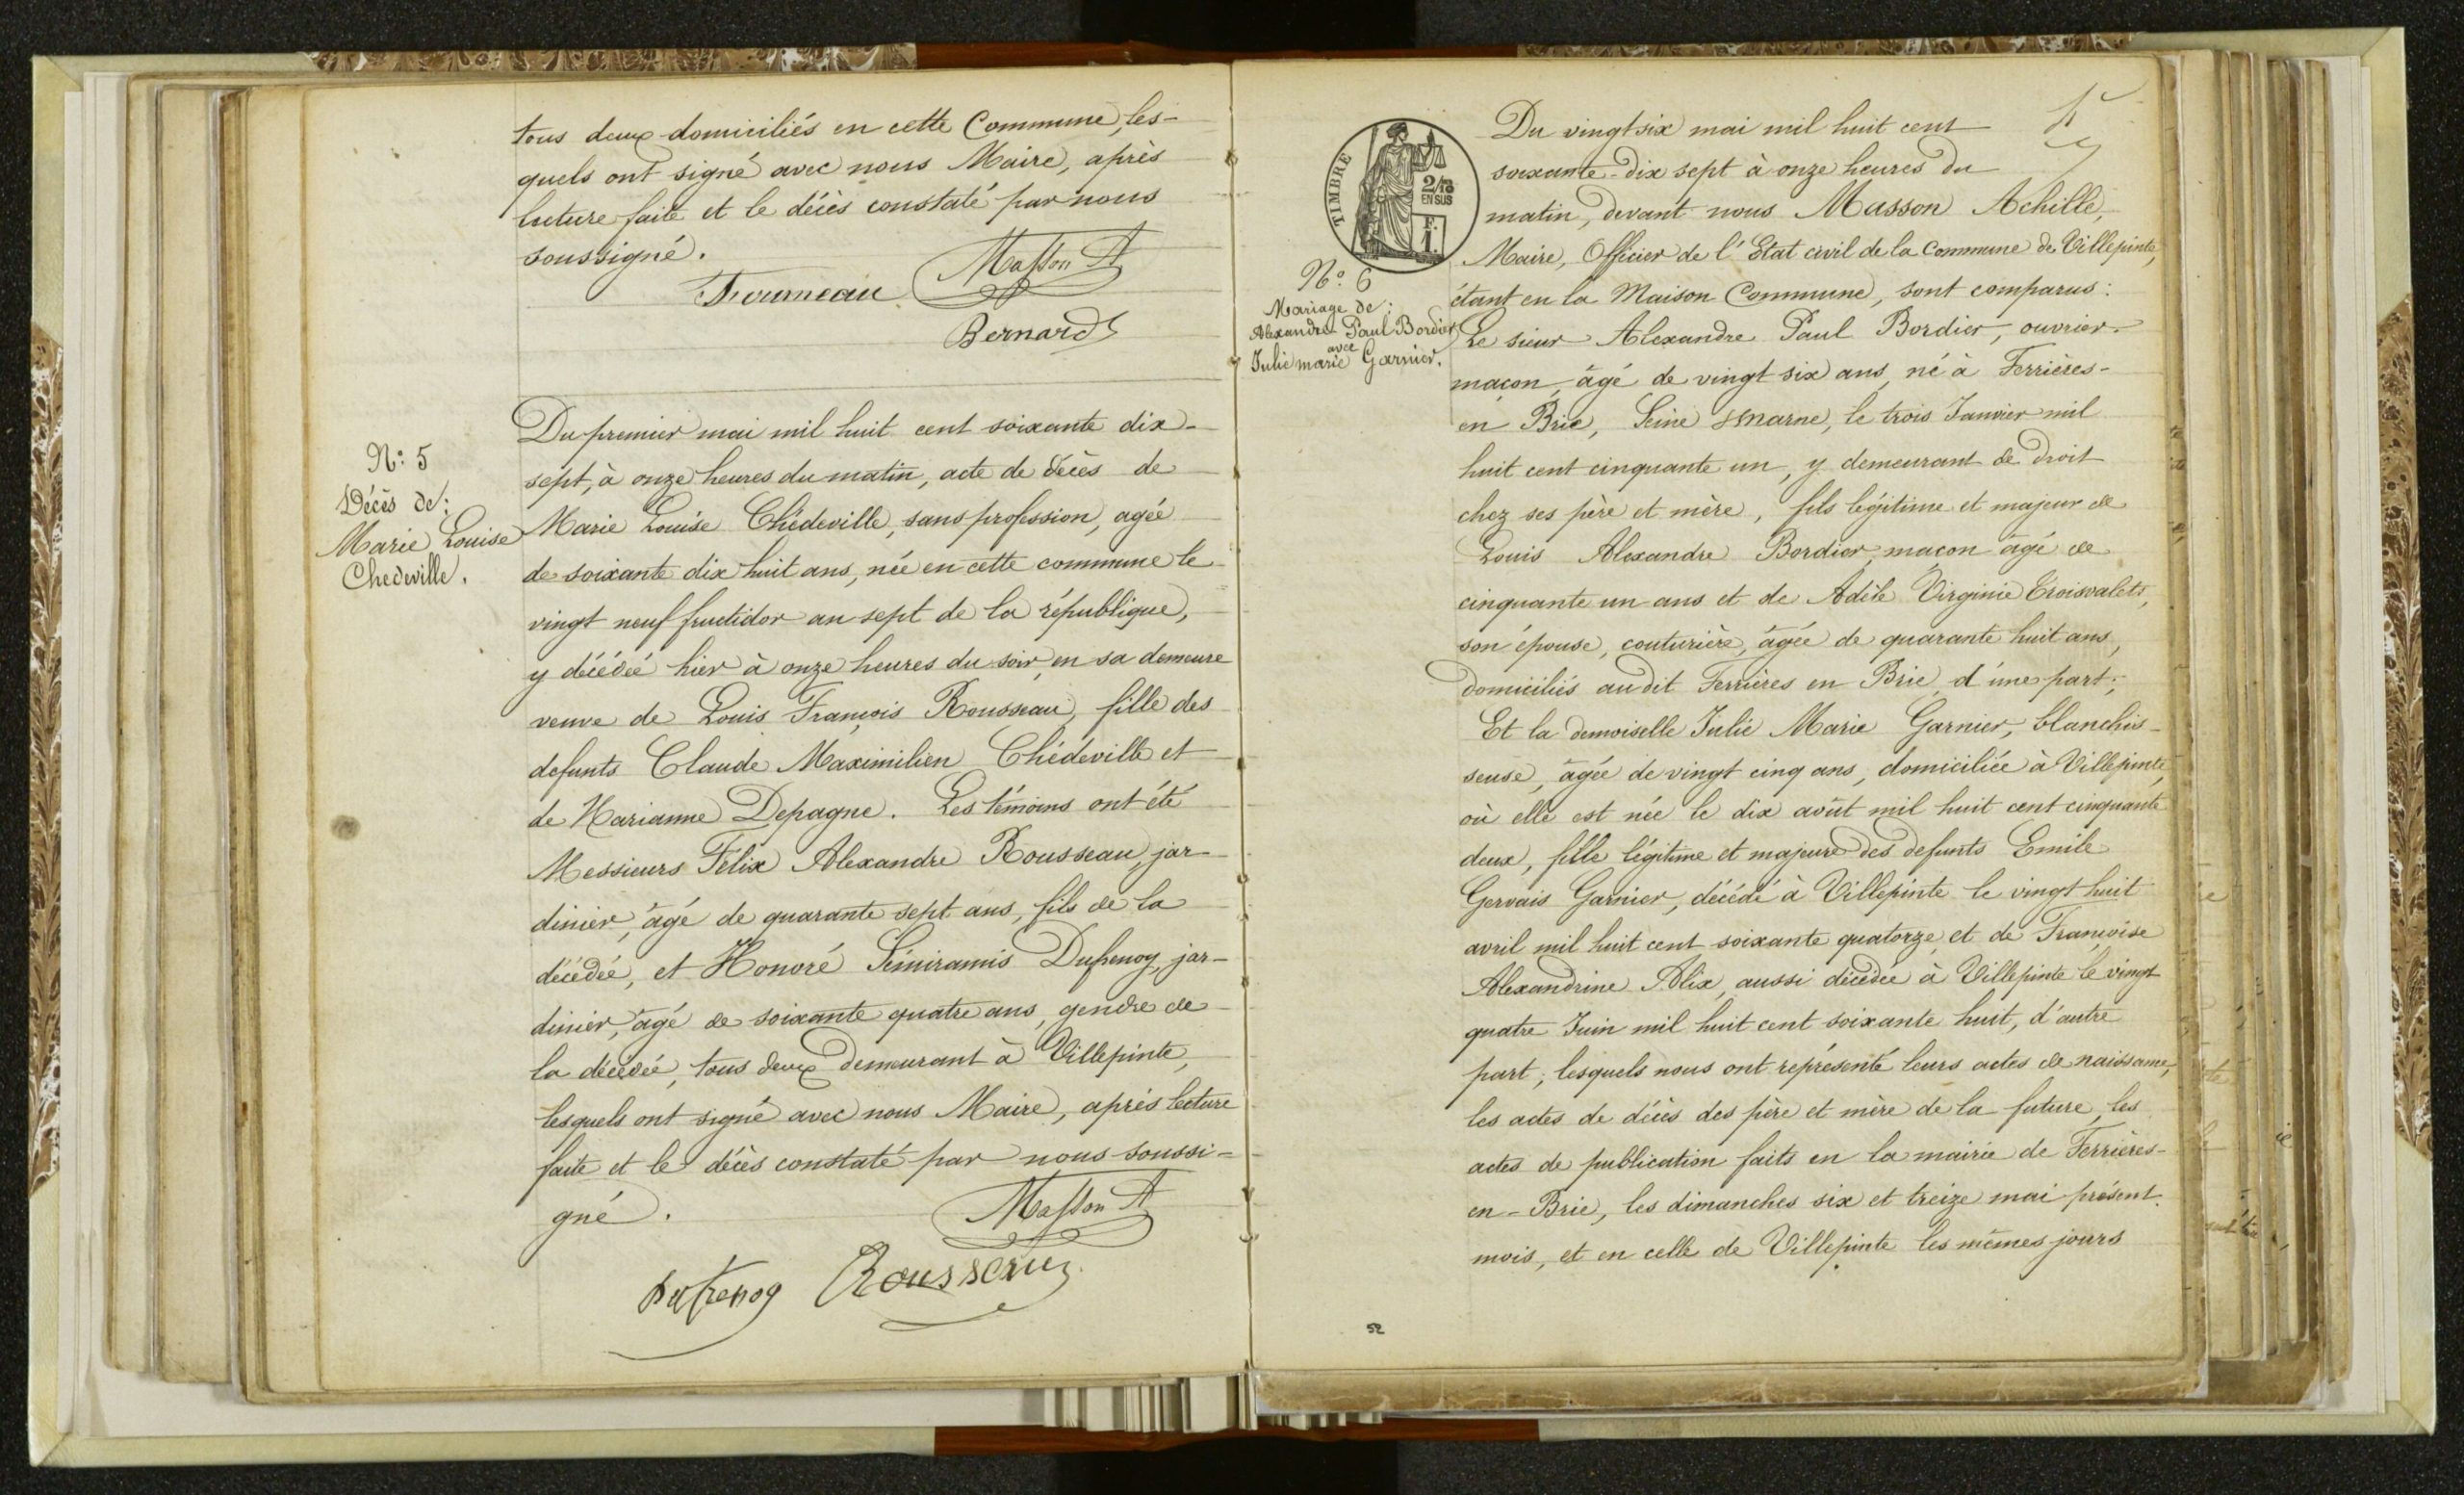 tous deux domiciliés en cette Commune, les-
quels ont signé avec nous Maire, après
lecture faite et le décès constaté par nous
soussigné.
Masson A
Fourneau
Bernard
N°: 5
Décès de:
Marie Louise
Chedeville.
Du premier mai mil huit cent soixante dix-
sept, à onze heures du matin, acte de décès de
Marie Louise Chédeville, sans profession, agée
de soixante dix huit ans, née en cette commune le
vingt neuf fructidor an sept de la république,
y décédée hier à onze heures du soir, en sa demeure
veuve de Louis François Rousseau, fille des
defunts Claude Maximilien Chédeville et
de Marianne Depagne. Les témoins ont été
Messieurs Félix Alexandre Rousseau, jar-
dinier, âgé de quarante sept ans, fils de la
décédée, et Honoré Sémiramis Dufrenoy, jar-
dinier, âgé de soixante quatre ans, gendre de
la décédée, tous deux demeurant à Villepinte,
lesquels ont signé avec nous Maire, après lecture
faite et le décès constaté par nous soussi-
gné.
Masson A
Dufrenoy Rousseau
TIMBRE
2/10
EN SUS
F.
1.
N°: 6
Mariage de:
Alexandre Paul Bordier
avec
Julie marie Garnier.
Du vingt six mai mil huit cent
soixante-dix sept à onze heures du
matin, devant nous Masson Achille,
Maire, Officier de l'Etat civil de la Commune de Villepinte,
étant en la Maison Commune, sont comparus:
Le sieur Alexandre Paul Bordier, ouvrier-
maçon, âgé de vingt six ans, né à Ferrières-
en Brie, Seine & marne, le trois Janvier mil
huit cent cinquante un, y demeurant de droit
chez ses père et mère, fils légitime et majeur de
Louis Alexandre Bordier, maçon âgé de
cinquante un ans et de Adèle Virginie Troisvalets,
son épouse, couturière, âgée de quarante huit ans,
domiciliés audit Ferrières en Brie, d'une part;
Et la demoiselle Julie Marie Garnier, blanchis-
seuse, âgée de vingt cinq ans, domiciliée à Villepinte,
où elle est née le dix août mil huit cent cinquante
deux, fille légitime et majeure des defunts Emile
Gervais Garnier, décédé à Villepinte le vingt huit
avril mil huit cent soixante quatorze, et de Françoise
Alexandrine Alix, aussi décédée à Villepinte le vingt
quatre Juin mil huit cent soixante huit, d'autre
part, lesquels nous ont représenté leurs actes de naissance,
les actes de décès des père et mère de la future, les
actes de publication faits en la mairie de Ferrières-
en-Brie, les dimanches six et treize mai présent
mois, et en celle de Villepinte les mêmes jours
52